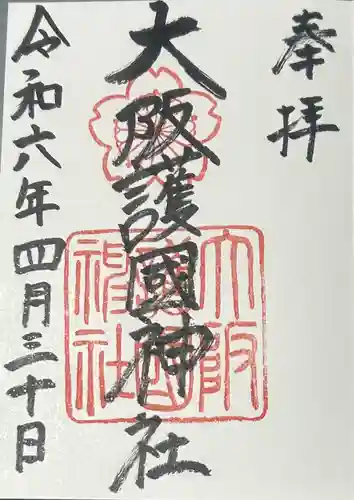 奉拝
大阪護國神社
令和六年四月三十日
大阪護國神社